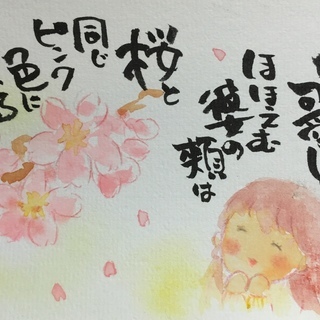 可愛し
ほほえむ
彼女の
頬は
桜と
同じ
ピンク
色に
る